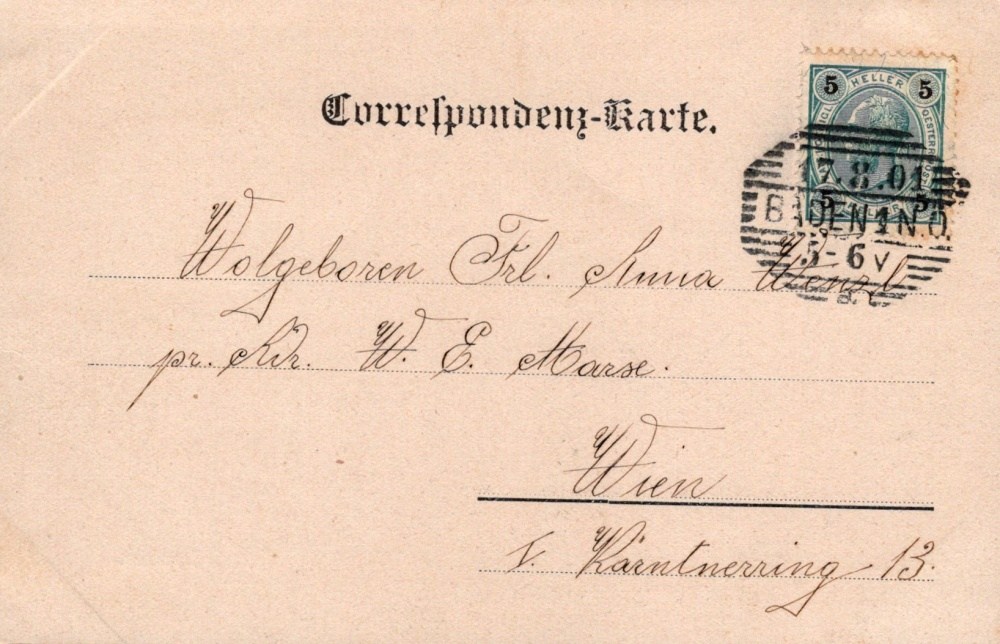 Correspondenz-Karte.
5 HELLER 5
17.8.01
BADEN 1 N.Ö.
5-6 V
Wolgeboren Frl. Anna Wenzl
pr. Adr. W. E. Marse.
Wien
I. Kärntnerring 13.